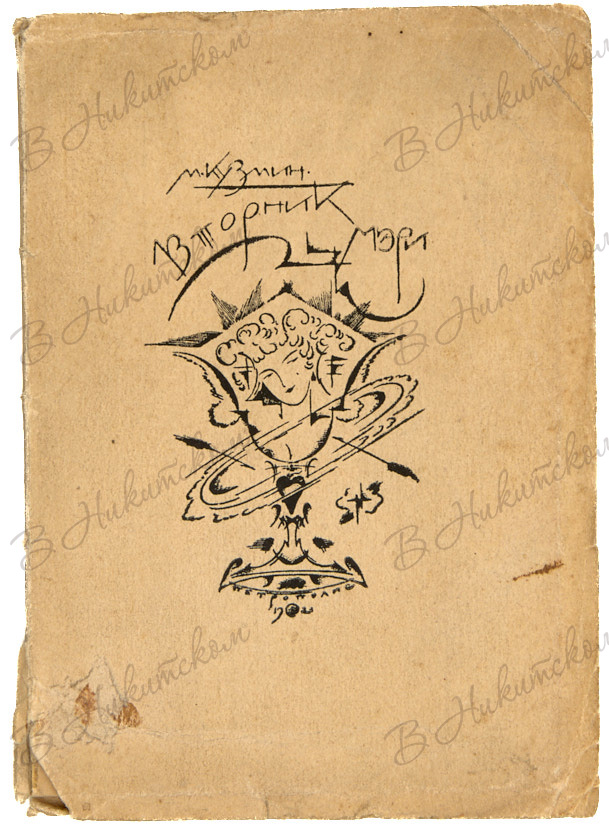 М. КУЗМИН.
ВТОРНИК
МЭРИ
ПЕТРОПОЛИС
19 21
В Никитском
В Никитском
В Никитском
В Никитском
В Никитском
В Никитском
В Никитском
В Никитском